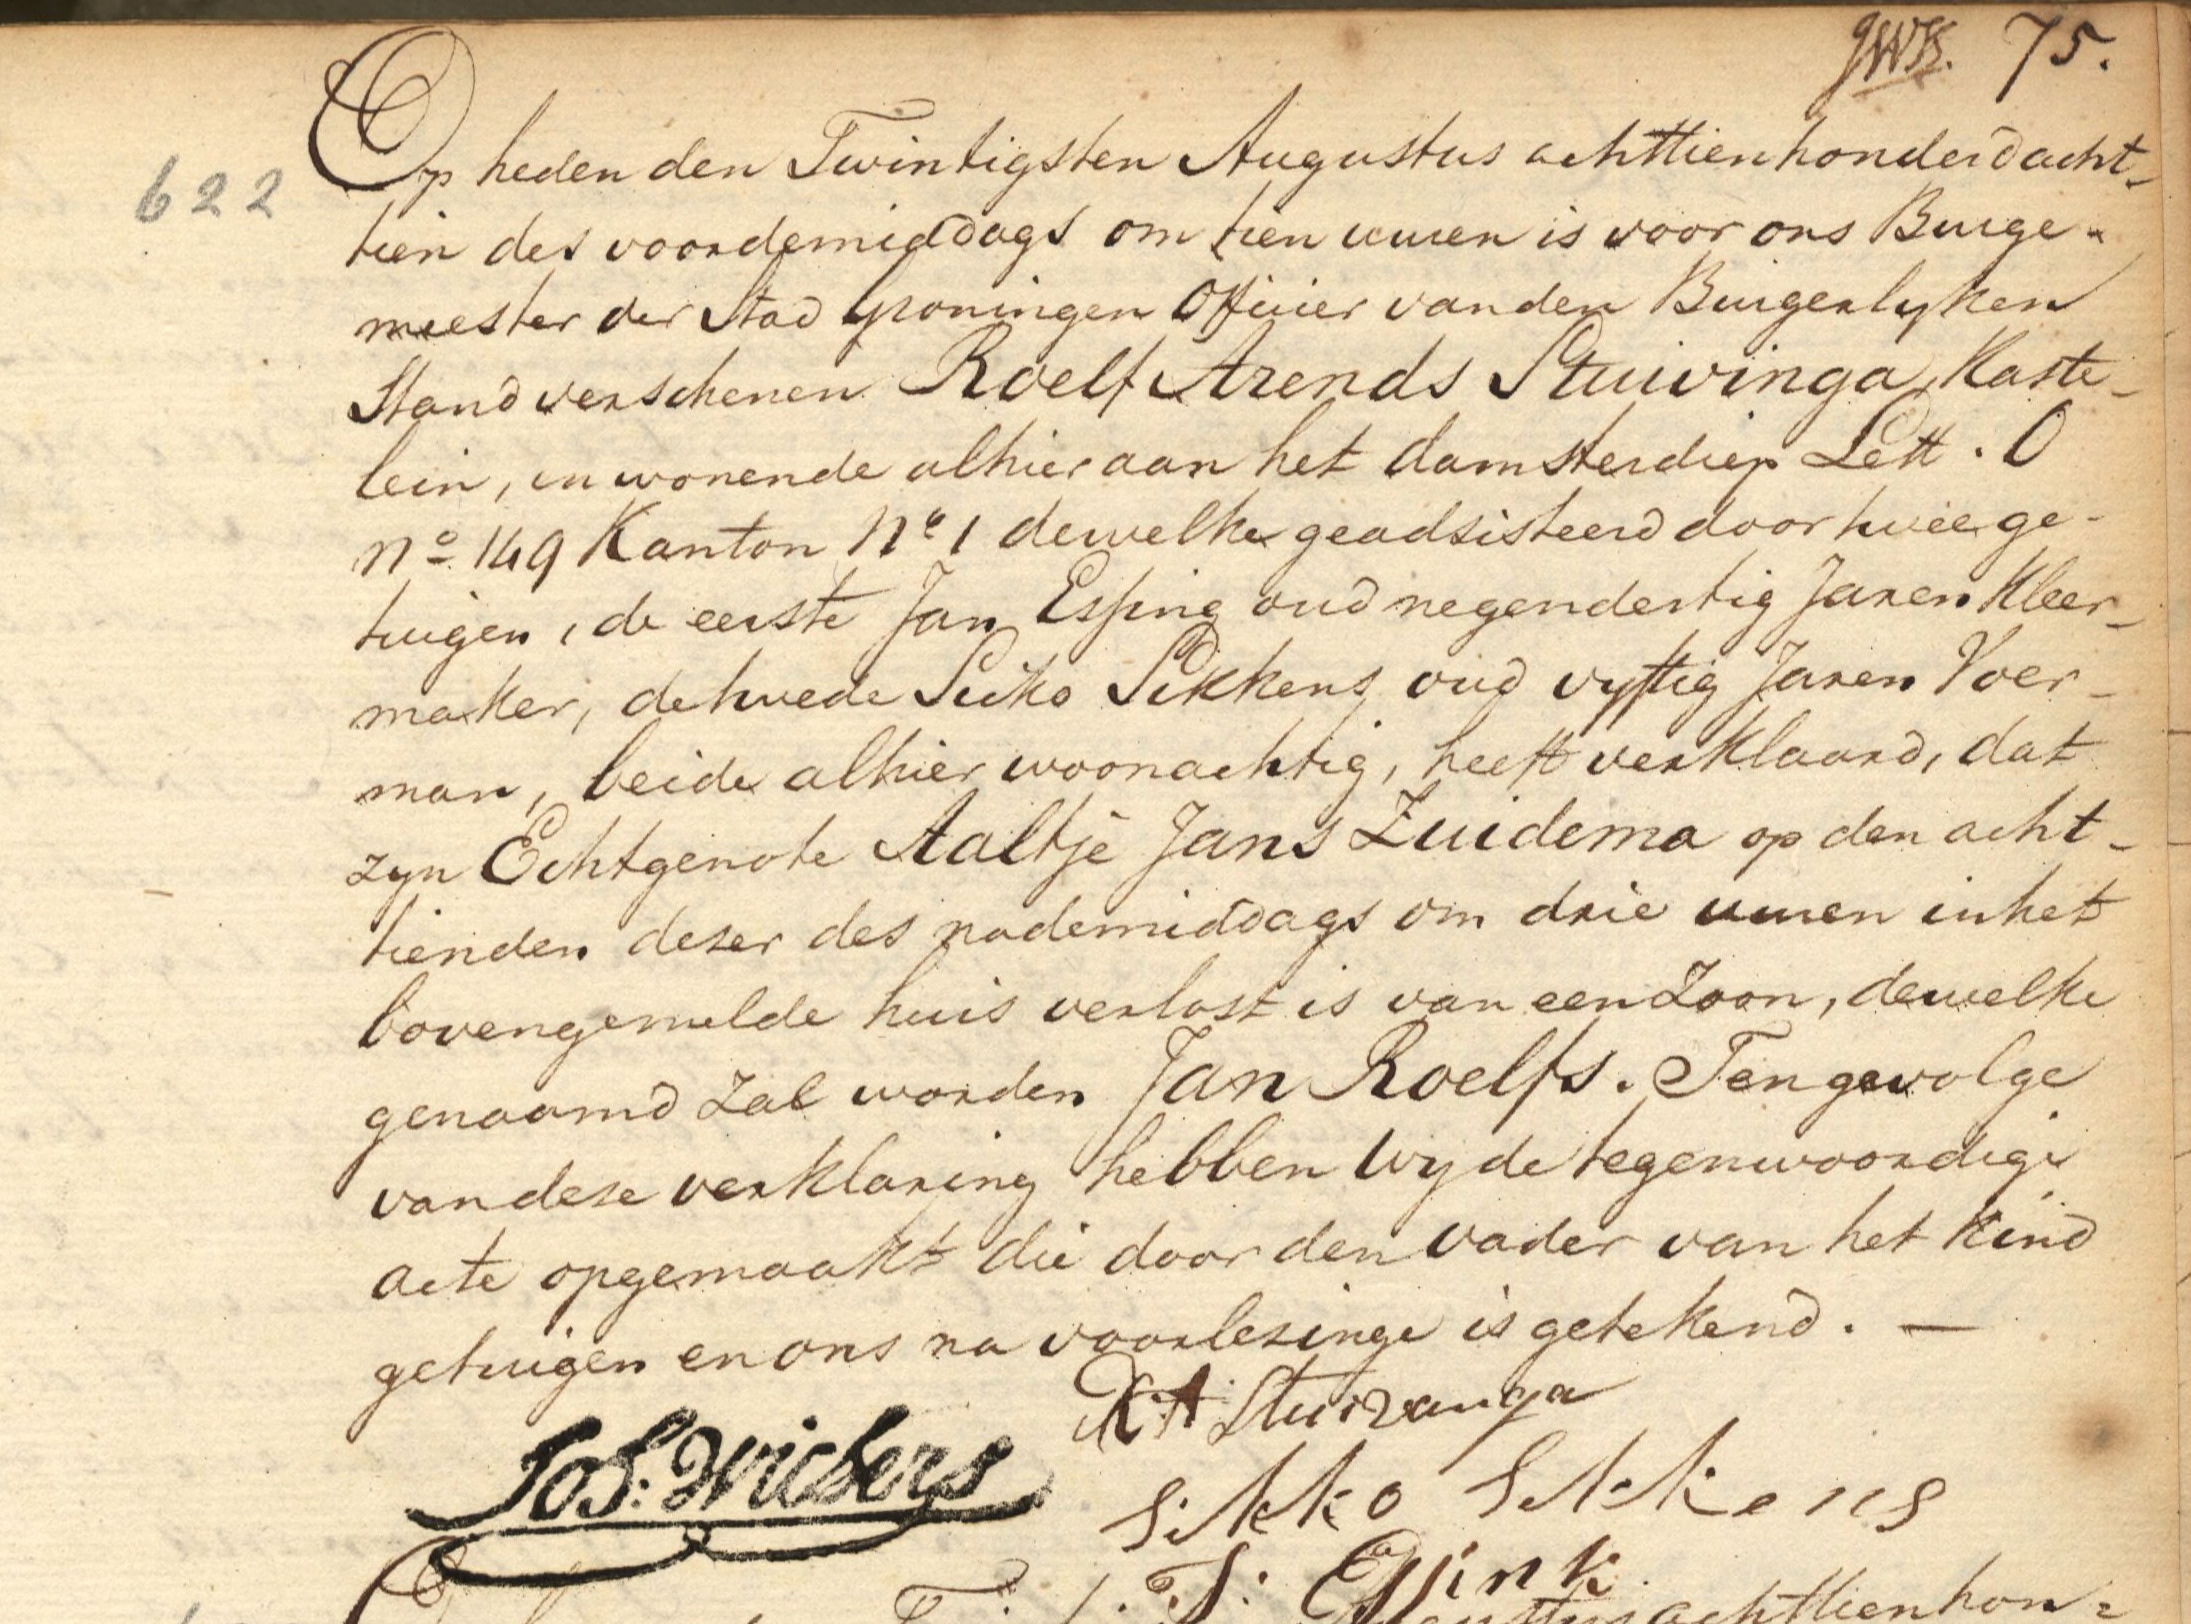 75.
622
Op heden den Twintigsten Augustus achttienhonderd acht-
tien des voordemiddags om tien uuren is voor ons Burge-
meester der Stad Groningen Officier van den Burgerlyken
Stand verschenen Roelf Arends Stuivinga, Kaste-
lein, inwonende alhier aan het damsterdiep Lett. O
No 149 Kanton No 1 dewelke geadsisteerd door twee ge-
tuigen, de eerste Jan Esping oud negendertig Jaren Kleer-
maker, de twede Sicko Sikkens oud vyftig Jaren Voer-
man, beide alhier woonachtig, heeft verklaard, dat
zyn Echtgenote Aaltje Jans Zuidema op den acht-
tienden deser des nademiddags om drie uuren in het
bovengemelde huis verlost is van een Zoon, dewelke
genaamd zal worden Jan Roelfs. Tengevolge
van dese verklaring hebben wy de tegenwoordige
acte opgemaakt die door den vader van het kind
getuigen en ons na voorlezinge is getekend. —
R A Stuivanga
Jos: Wichers
sikko sikkens
achttienhon=